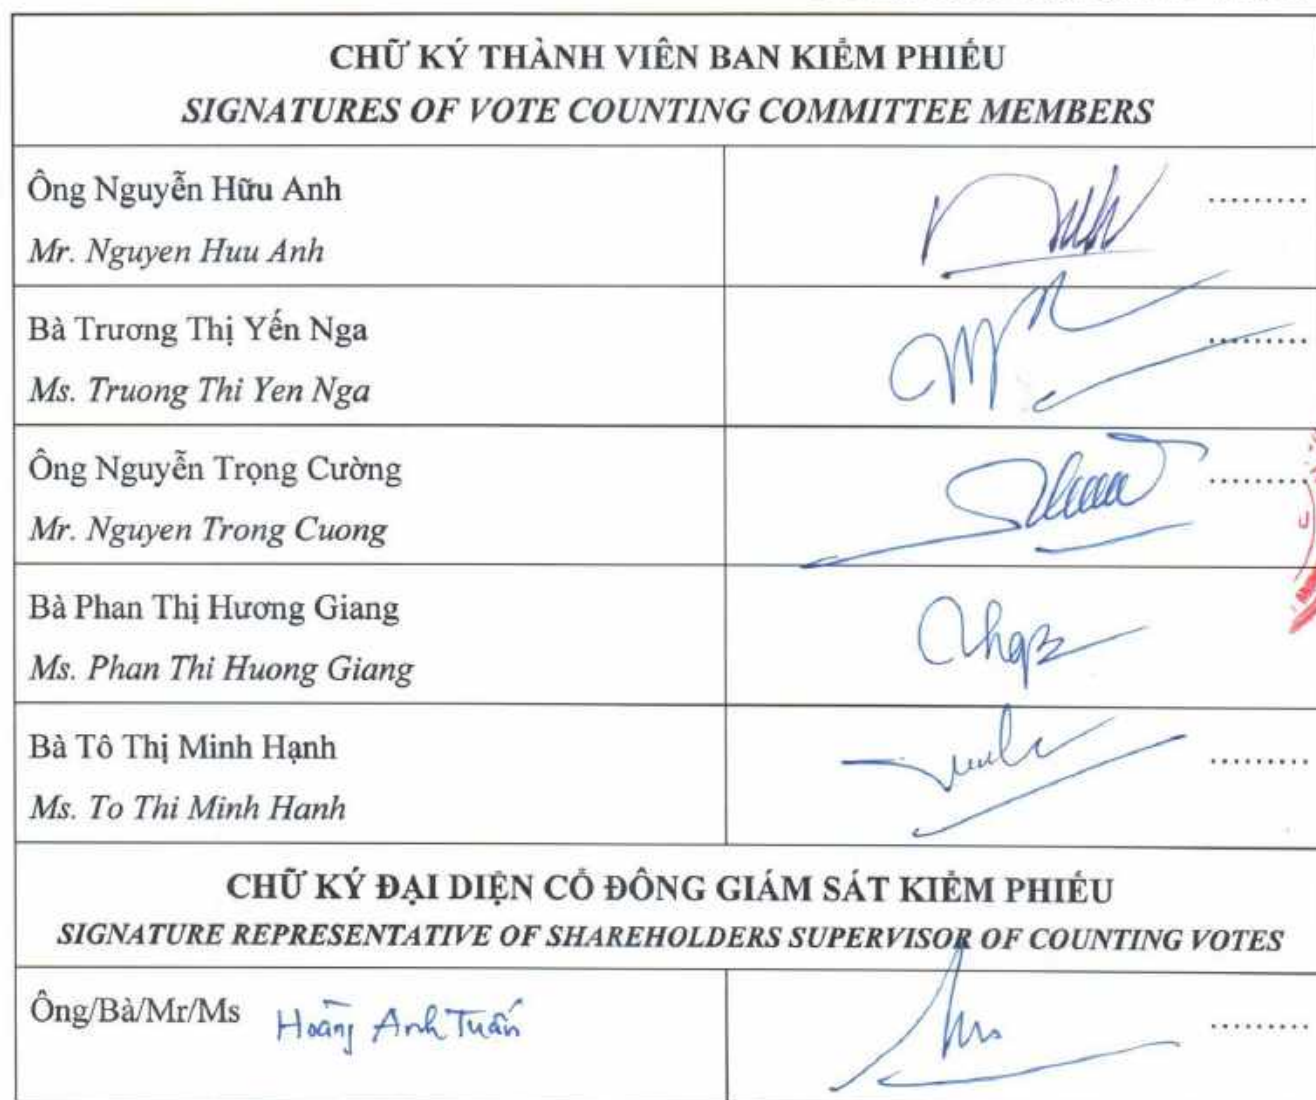 CHỮ KÝ THÀNH VIÊN BAN KIỂM PHIẾU
SIGNATURES OF VOTE COUNTING COMMITTEE MEMBERS
Ông Nguyễn Hữu Anh
Mr. Nguyen Huu Anh
.........
Bà Trương Thị Yến Nga
Ms. Truong Thi Yen Nga
.........
Ông Nguyễn Trọng Cường
Mr. Nguyen Trong Cuong
.........
Bà Phan Thị Hương Giang
Ms. Phan Thi Huong Giang
Bà Tô Thị Minh Hạnh
Ms. To Thi Minh Hanh
.........
CHỮ KÝ ĐẠI DIỆN CỔ ĐÔNG GIÁM SÁT KIỂM PHIẾU
SIGNATURE REPRESENTATIVE OF SHAREHOLDERS SUPERVISOR OF COUNTING VOTES
Ông/Bà/Mr/Ms Hoàng Anh Tuấn
.........